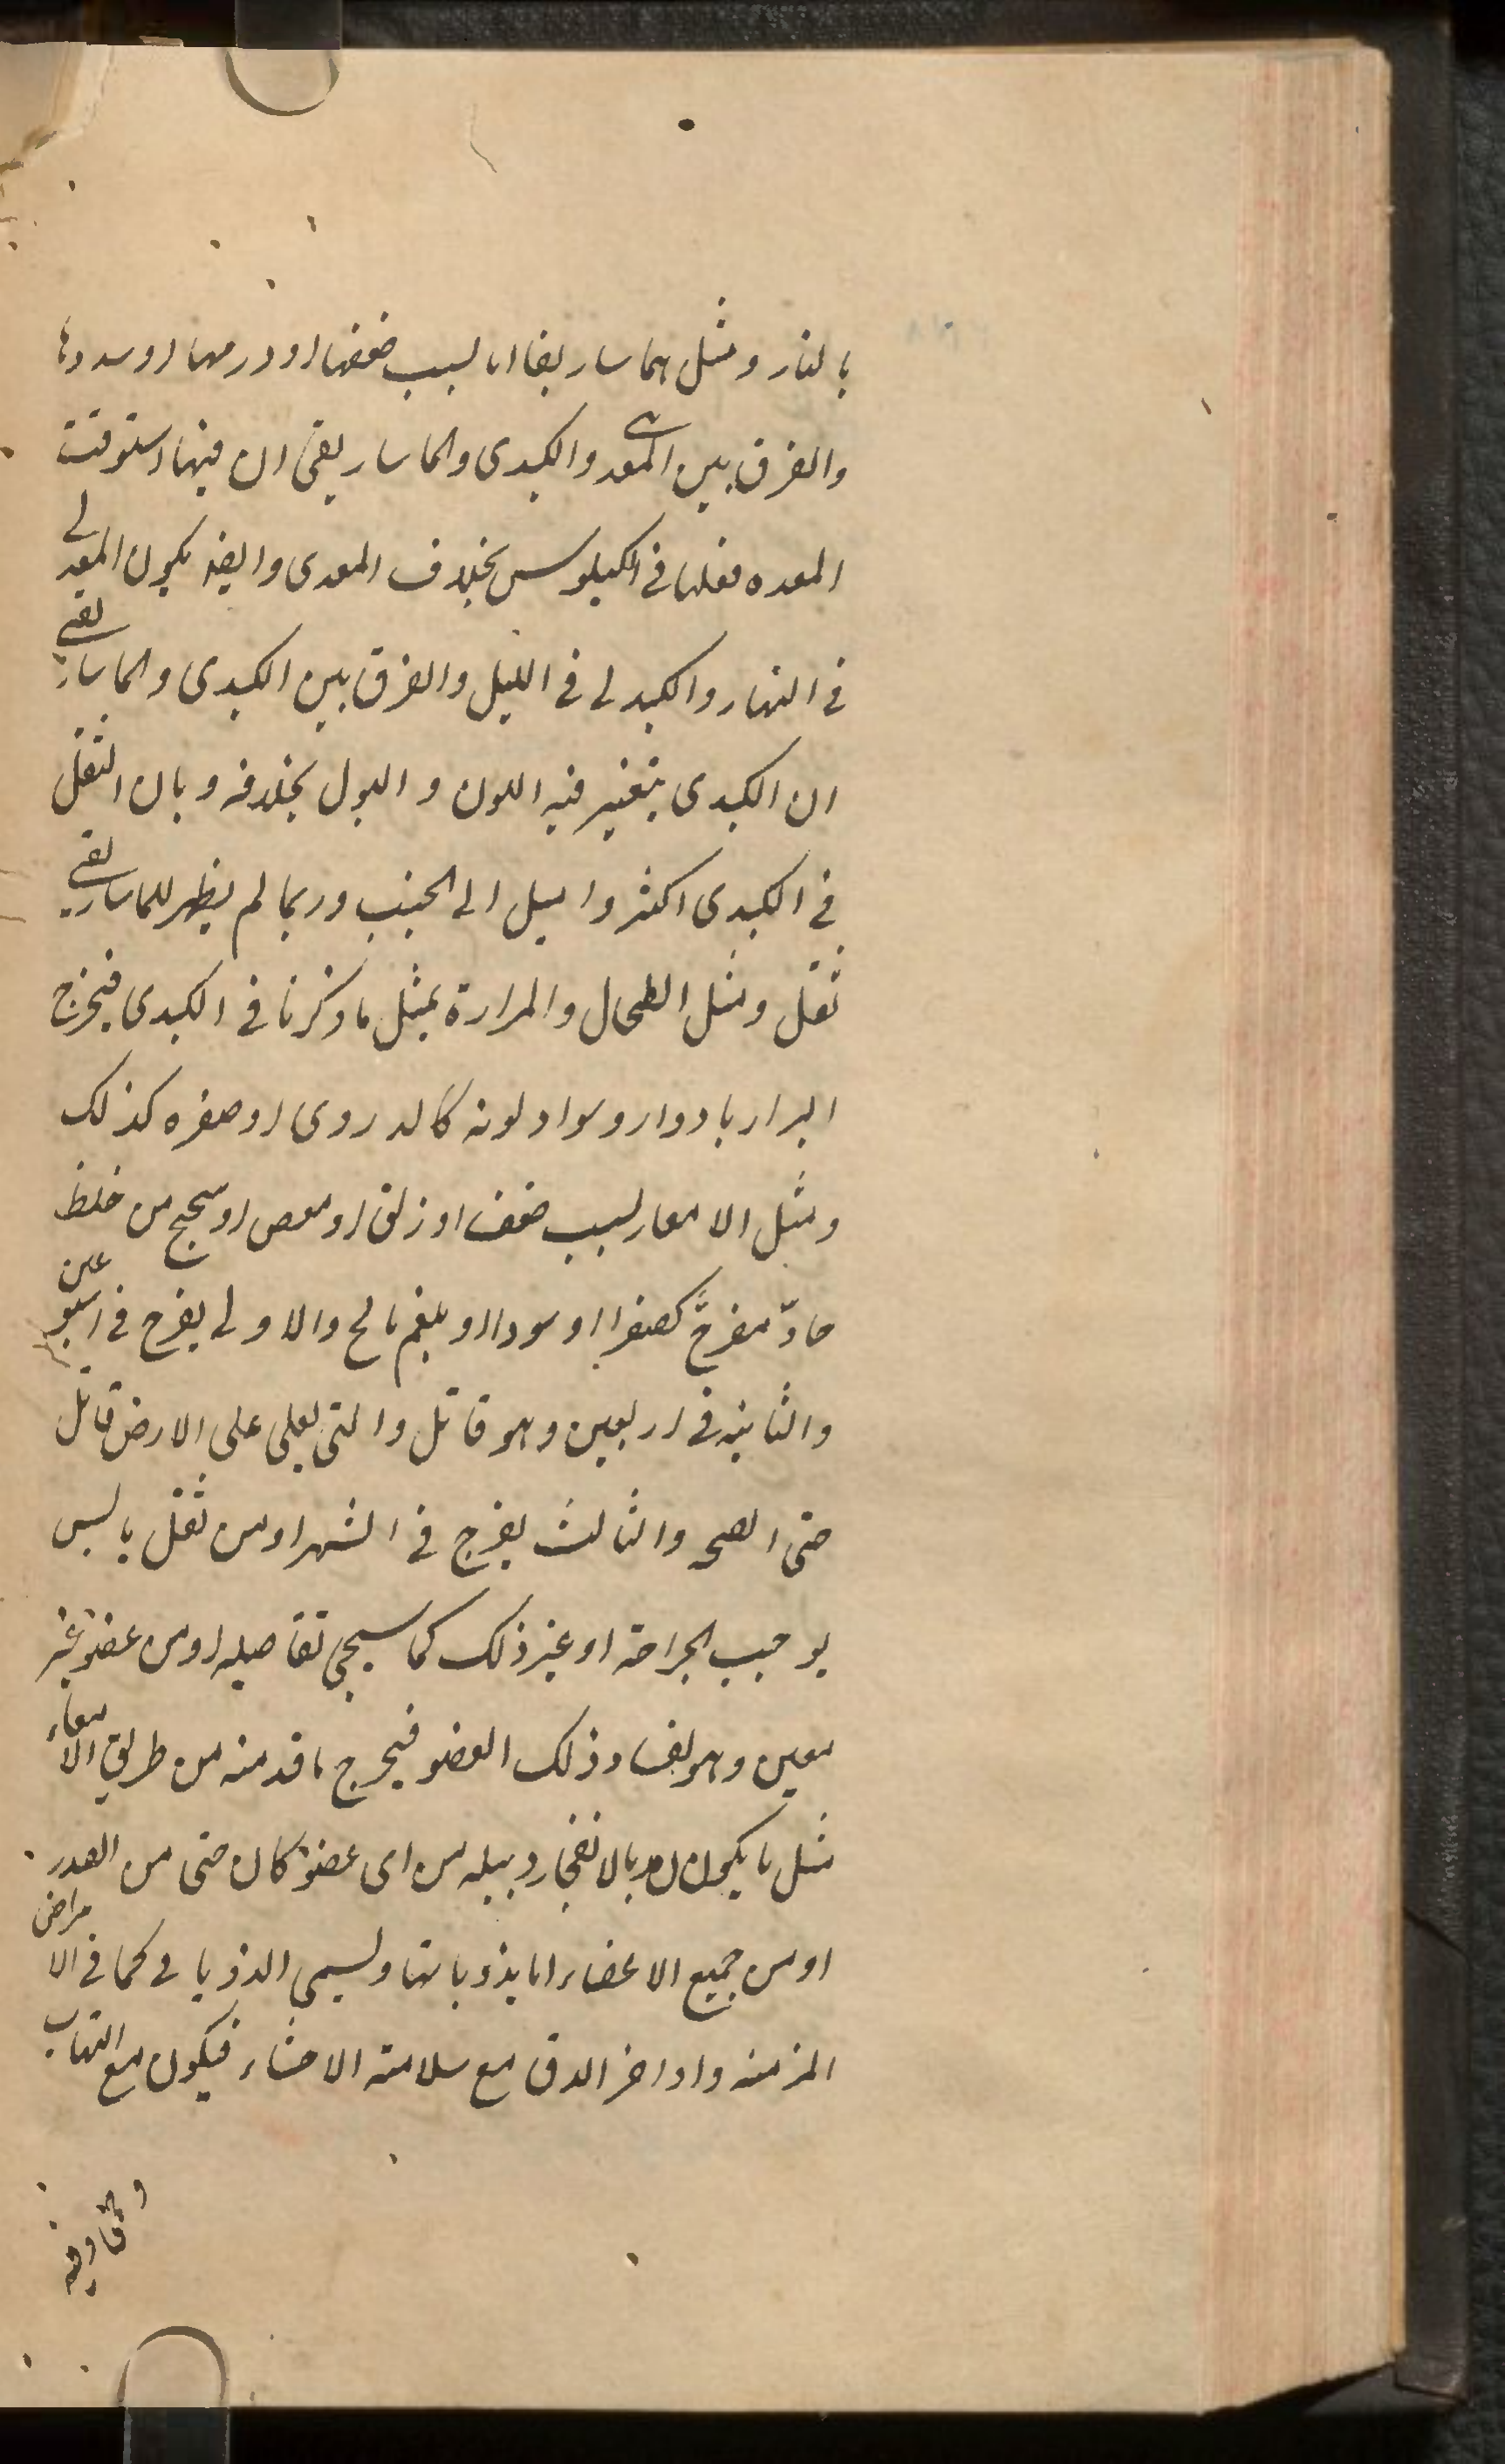 بالنار ومثل الماساريقا اما لسبب ضعفها او ورمها او سددها
والفرق بين المعدى والكبدى والماساريقى ان فيهما استوفت
المعده فعلها فى الكيلوس بخلاف المعدى وايضا يكون المعدى
فى النهار والكبدى فى الليل والفرق بين الكبدى والماساريقى
ان الكبدى يتغير فيه اللون والبول بخلافه وبان الثقل
فى الكبدى اكثر واميل الى الجنب وربما لم يظهر للماساريقى
ثقل ومثل الطحال والمرارة بمثل ما ذكرنا فى الكبدى فيخرج
البراز بادوار وسواد لونه كالدردى او صفره كذلك
ومثل الامعاء لسبب ضعف او زلق او مغص او سحج من خلط
حادّ مقرح كصفرا او سودا او بلغم مالح والاولى يقرح فى اسبوعين
والثانيه فى اربعين وهو قاتل والتى يغلى على الارض قاتل
حتى الصحه والثالث يقرح فى الشهر او من ثفل يابس
يوجب الجراحة او غير ذلك كما سيجى تفاصيله او من عضو غير
معين وهو لفساد ذلك العضو فيخرج ما فسد منه من طريق الامعاء
مثل ما يكون بالانفجار دبيله من اى عضو كان حتى من الصدر
او من جميع الاعضاء اما بذوبانها ويسمى الذوبانى كما فى الامراض
المزمنه واواخر الدق مع سلامة الاحشاء فيكون مع التهاب